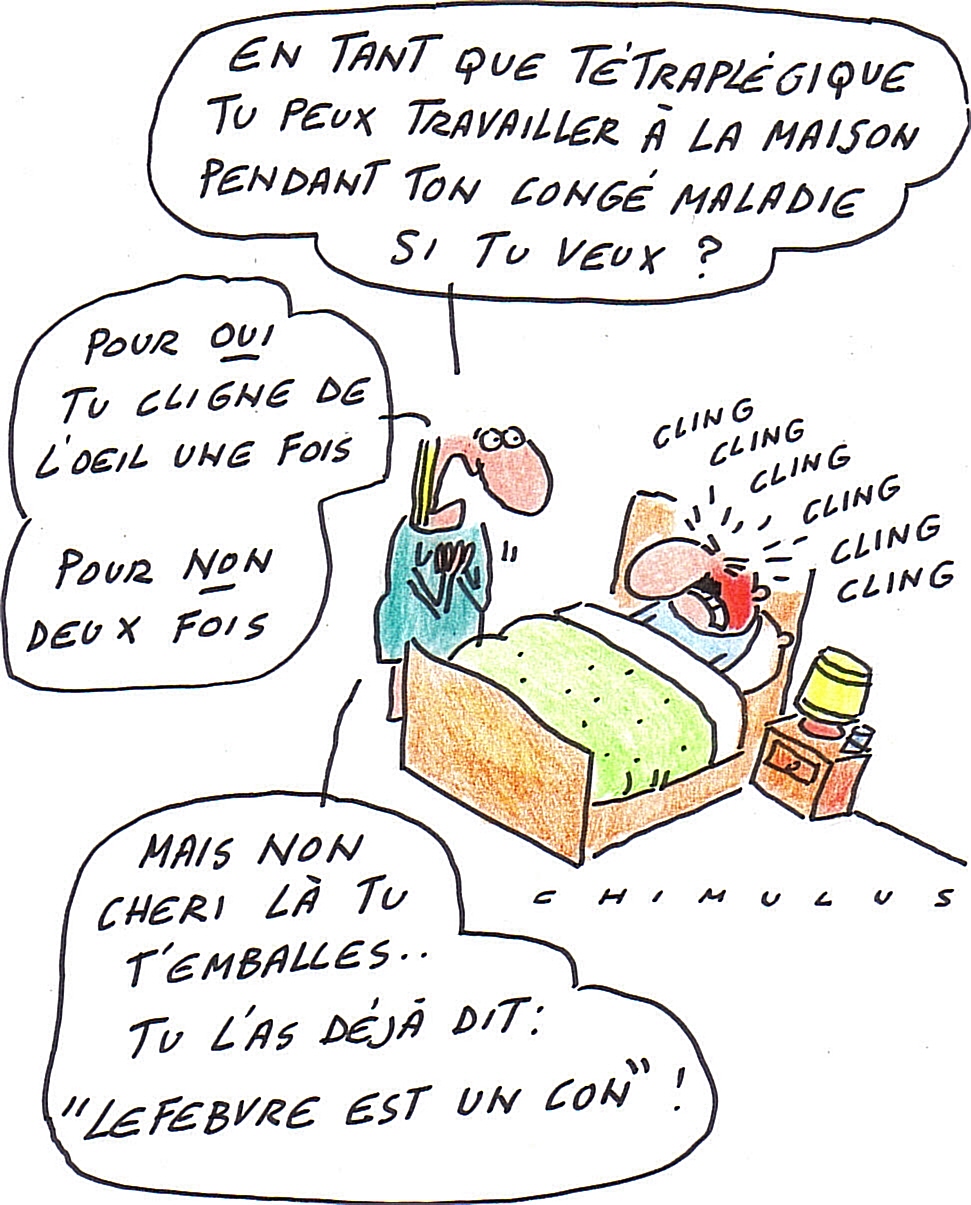 EN TANT QUE TÉTRAPLÉGIQUE
TU PEUX TRAVAILLER À LA MAISON
PENDANT TON CONGÉ MALADIE
SI TU VEUX ?
POUR OUI
TU CLIGNE DE
L'OEIL UNE FOIS
POUR NON
DEUX FOIS
CLING
CLING
CLING
CLING
CLING
CLING
MAIS NON
CHERI LÀ TU
T'EMBALLES..
TU L'AS DÉJÀ DIT:
"LEFEBVRE EST UN CON" !
CHIMULUS